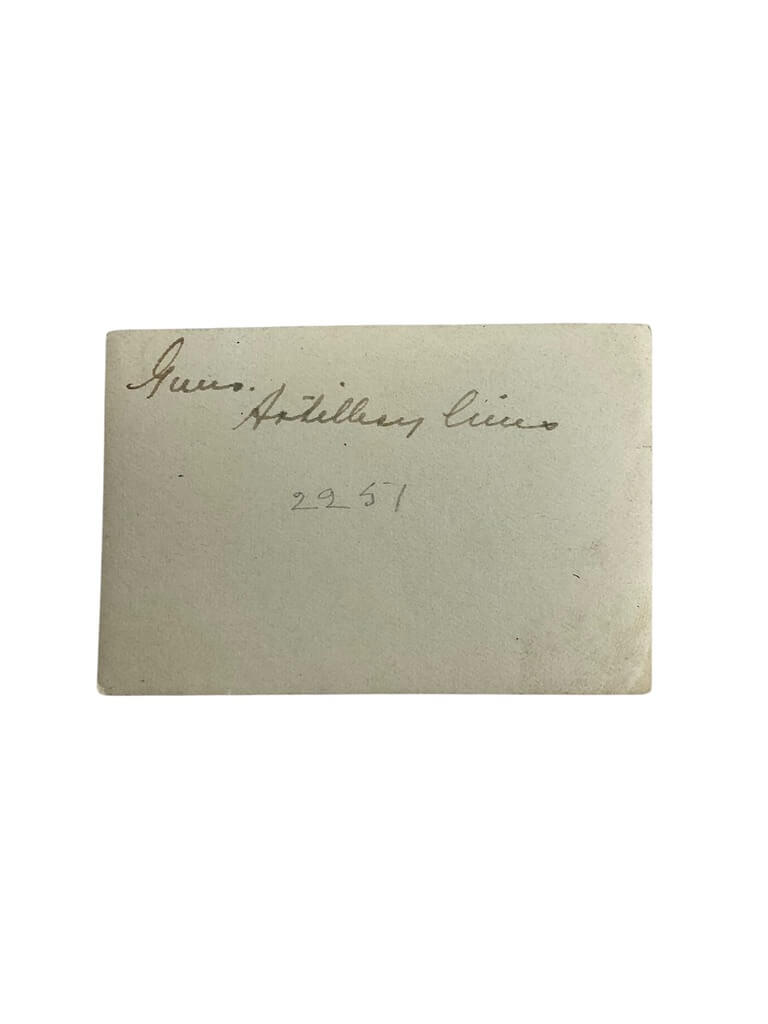 Guns.
Artillery lines
2251